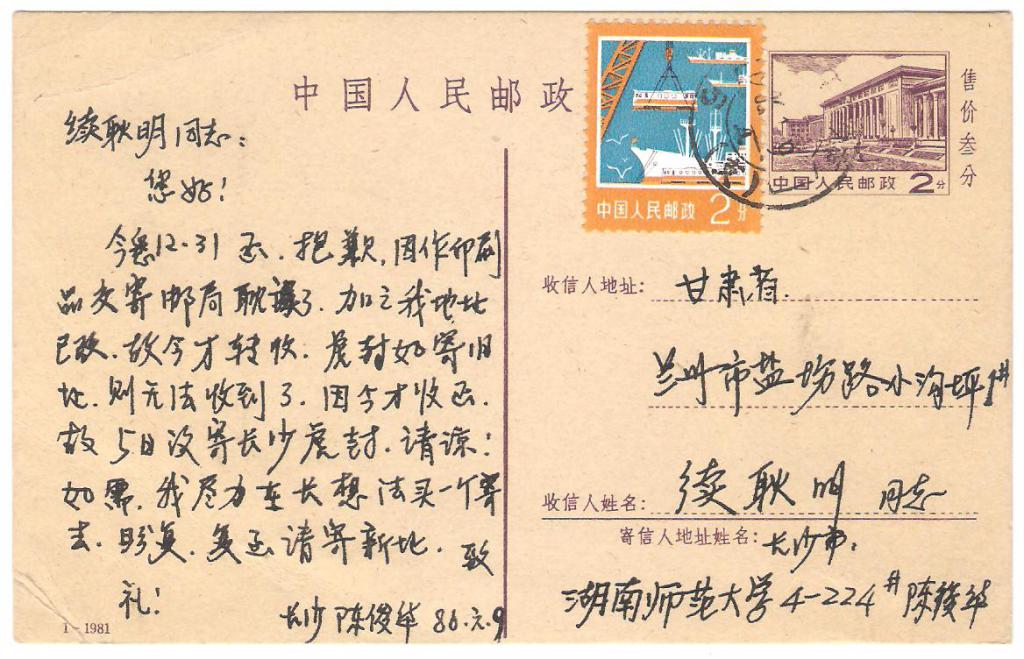 中国人民邮政
售价叁分
中国人民邮政 2分
中国人民邮政 2分
续耿明同志：
您好！
今悉12.31函.抱歉,因作印刷
品交寄邮局耽误了.加之我地址
已改.故今才转收.虎封如寄旧
址.则无法收到了.因今才收函.
故5日没寄长沙虎封.请谅：
如需.我尽力在长想法买一个寄
去.盼复.复函请寄新址.致
礼！
长沙 陈俊华 86.元.9
1-1981
收信人地址：甘肃省.
兰州市盐场路小沟坪1#
收信人姓名：续耿明 同志
寄信人地址姓名：长沙市：
湖南师范大学4-224# 陈俊华